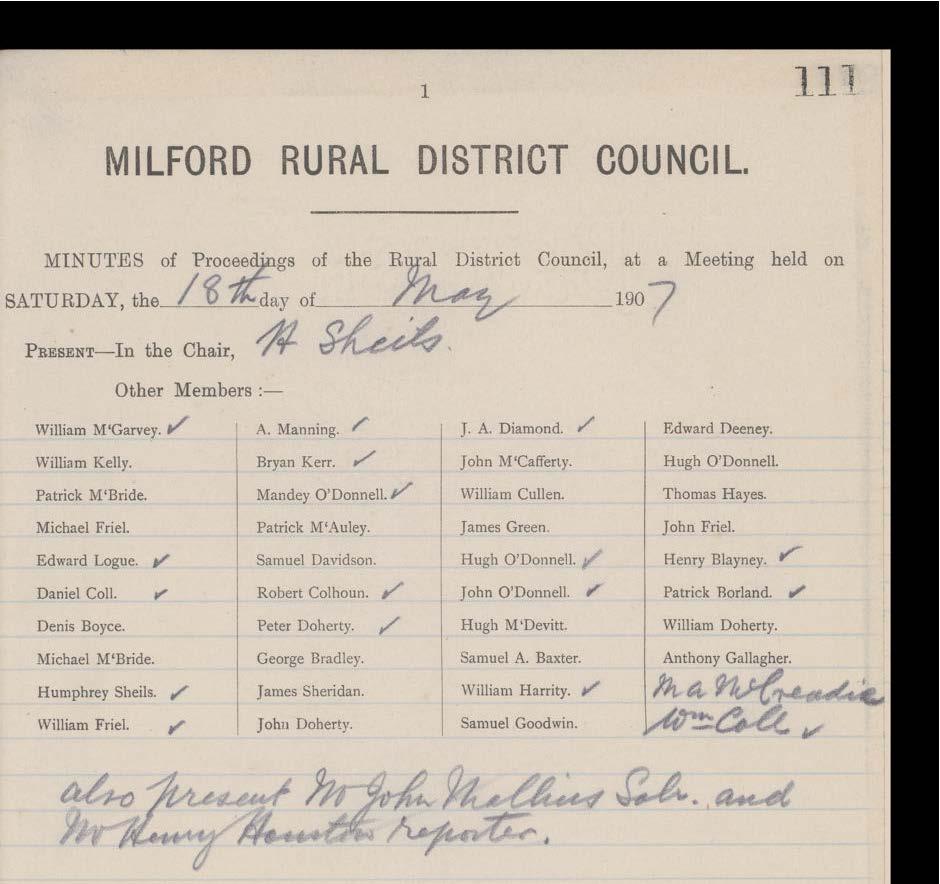 111
1
MILFORD RURAL DISTRICT COUNCIL.
MINUTES of Proceedings of the Rural District Council, at a Meeting held on
SATURDAY, the 18th day of May 1907
PRESENT—In the Chair, H Sheils.
Other Members :—
William M‘Garvey. ✓ A. Manning. ✓ J. A. Diamond. ✓ Edward Deeney.
William Kelly. Bryan Kerr. ✓ John M‘Cafferty. Hugh O’Donnell.
Patrick M‘Bride. Mandey O’Donnell. ✓ William Cullen. Thomas Hayes.
Michael Friel. Patrick M‘Auley. James Green. John Friel.
Edward Logue. ✓ Samuel Davidson. Hugh O’Donnell. ✓ Henry Blayney. ✓
Daniel Coll. ✓ Robert Colhoun. ✓ John O’Donnell. ✓ Patrick Borland. ✓
Denis Boyce. Peter Doherty. ✓ Hugh M‘Devitt. William Doherty.
Michael M‘Bride. George Bradley. Samuel A. Baxter. Anthony Gallagher.
Humphrey Sheils. ✓ James Sheridan. William Harrity. ✓ M a McCreadie
William Friel. ✓ John Doherty. Samuel Goodwin. Wm Coll ✓
also present Mr John Solr. and
Mr Henry Houston reporter.